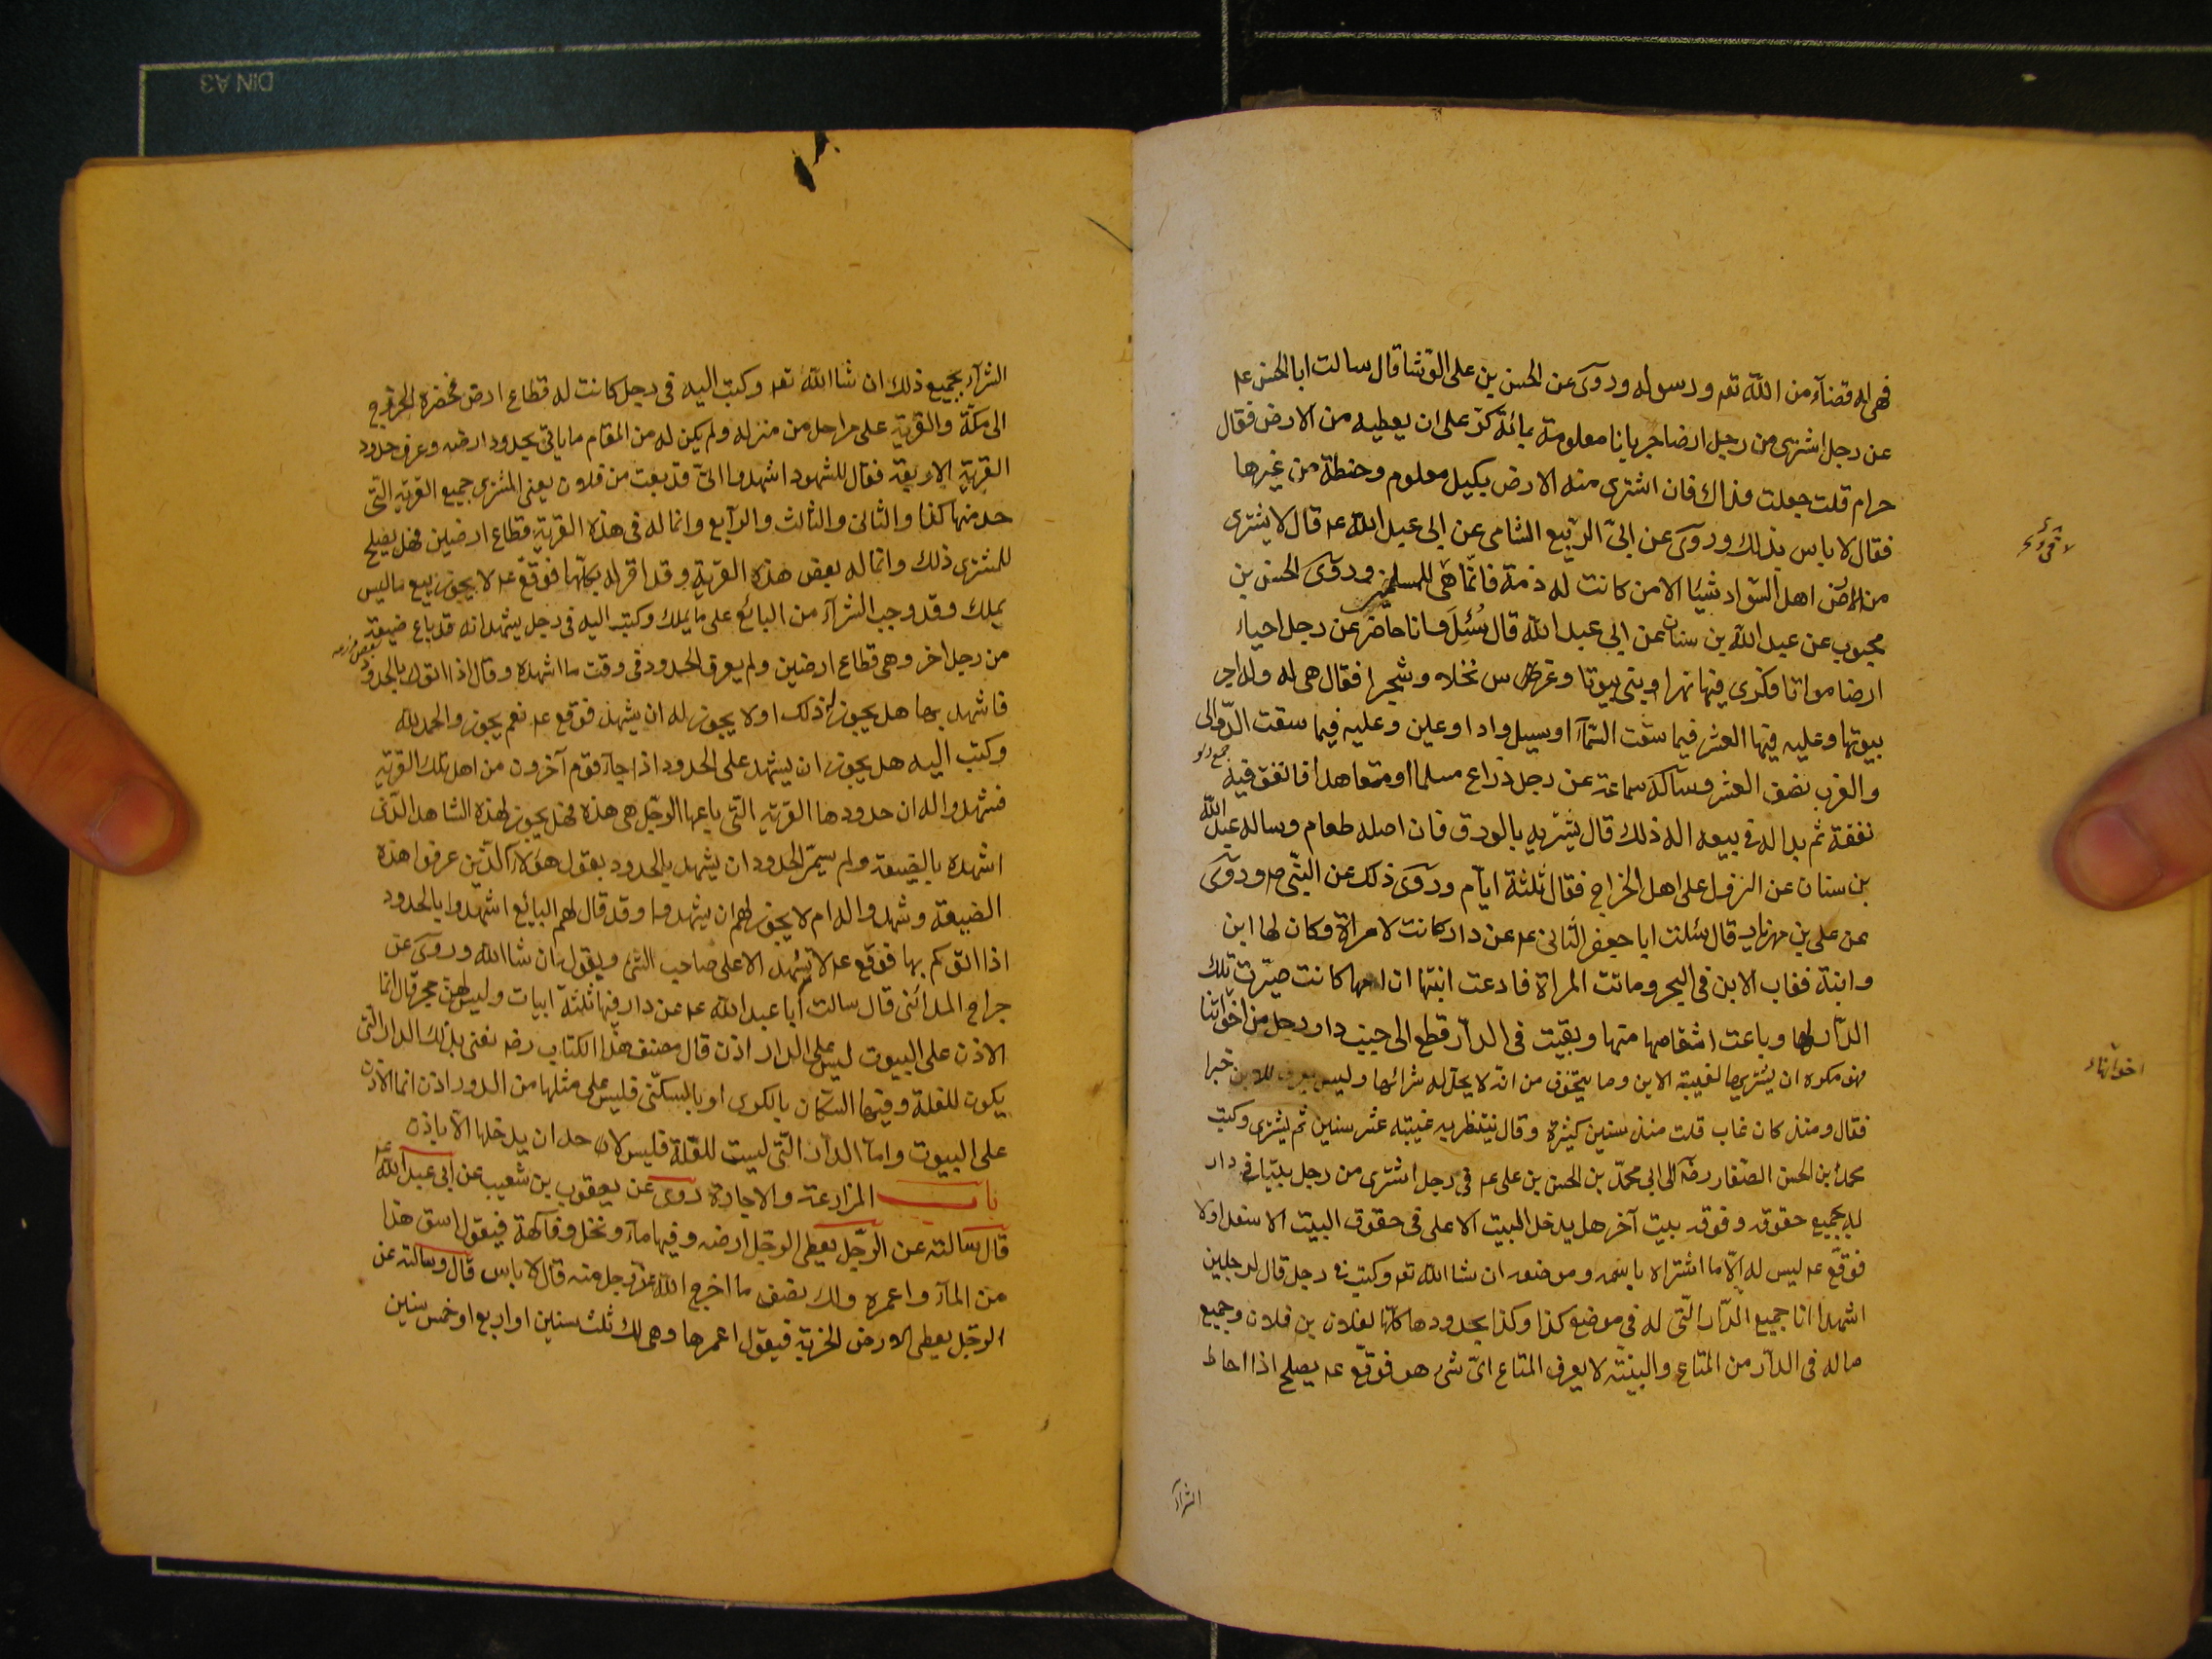 فهى له قضآء من الله تعه ورسوله وروى عن الحسن بن على الوشا قال سالت ابا الحسن عه
عن رجل اشترى من رجل ارضا جربانا معلومة بمائة كر على ان يعطيه من الارض فقال
حرام قلت جعلت فداك فان اشترى منه الارض بكيل معلوم وحنطة من غيرها
فقال لا باس بذلك وروى عن ابى الربيع الشامى عن ابى عبد الله عه قال لا يشترى
من اراضى اهل السواد شيئا الا من كانت له ذمة فانما هى للمسلمين وروى الحسن بن
محبوب عن عبد الله بن سنان عن ابى عبد الله قال سُئِلَ وانا حاضر عن رجل احياء
ارضا مواتا فكرى فيها نهرا وبنى بيوتا وغرس نخلا وشجرا فقال هى له وله اجر
بيوتها وعليه فيها العشر فيما سقت السمآء او سيل واد او عين وعليه فيما سقت الدوالى
جمع دلو
والغرب نصف العشر وساله سماعة عن رجل زراع مسلما او متعاهدا فانفق فيه
نفقة ثم بدا له فى بيعه اله ذلك قال يشتريه بالورق فان اصله طعام وساله عبد الله
بن سنان عن النزول على اهل الخراج فقال ثلثة ايام وروى ذلك عن النبى صه وروى
عن على بن مهزيار قال سئلت ابا جعفر الثانى عه عن دار كانت لامراة وكان لها ابن
وابنة فغاب الابن فى البحر وماتت المراة فادعت ابنتها ان امها كانت صيرت تلك
الدار لها وباعت اشقاصها منها وبقيت فى الدار قطع الى جنب دار رجل من اخواننا
فهو مكره ان يشتريها لغيبة الابن وما يتخوف من انه لا يحل له شرائها وليس يعرف للابن خبرا
فقال ومنذ كان غاب قلت منذ سنين كثيرة وقال ينتظر به غيبته عشر سنين ثم يشترى وكتب
محمد بن الحسن الصفار رضه الى ابى محمد بن الحسن بن على عه فى رجل اشترى من رجل بيتا فى دار
له بجميع حقوقه وفوقه بيت آخر هل يدخل البيت الاعلى فى حقوق البيت الاسفل او لا
فوقع عه ليس له الا ما اشتراه باسمه وموضعه ان شا الله تعه وكتب فى رجل قال لرجلين
اشهدا انا جميع الدار التى له فى موضع كذا وكذا بحدودها كلها لفلان بن فلان وجميع
ماله فى الدار من المتاع والبينة لا يعرف المتاع اى شئ هو فوقع عه يصلح اذا احاط
الشرآء
الشرآء بجميع ذلك ان شا الله تعه وكتب اليه فى رجل كانت له قطاع ارض فحضره الخروج
الى مكة والقرية على مراحل من منزله ولم يكن له من المقام ما ياتى بحدود ارضه وعرف حدود
القرية الاربعة فقال للشهود اشهدوا انى قد بعت من فلان يعنى المشترى جميع القرية التى
حد منها كذا والثانى والثالث والرابع وانما له فى هذه القرية قطاع ارضين فهل يصلح
للمشترى ذلك وانما له بعض هذه القرية وقد اقر له بكلها فوقع عه لا يجوز بيع ما ليس
يملك وقد وجب الشرآء من البائع على ما يملك وكتب اليه فى رجل يشهد انه قد باع ضيعة
من رجل اخر وهى قطاع ارضين ولم يعرف الحدود فى وقت ما اشهده وقال اذا اتوك بالحدود
فاشهد بها هل يجوز له ذلك او لا يجوز له ان يشهد فوقع عه نعم يجوز والحمد لله
وكتب اليه هل يجوز ان يشهد على الحدود اذا جآء قوم آخرون من اهل تلك القرية
فشهدوا له ان حدود هذا القرية التى باعها الرجل هى هذه فهل يجوز لهذه الشاهد الذى
اشهده بالضيعة ولم يسم الحدود ان يشهد بالحدود بقول هولآء الذين عرفوا هذه
الضيعة وشهدوا له ام لا يجوز لهم ان يشهدوا وقد قال لهم البائع اشهدوا بالحدود
اذا اتوكم بها فوقع عه لا تشهد الا على صاحب الشئ وبقوله ان شا الله وروى عن
جراح المدائنى قال سالت ابا عبد الله عه عن دار فيها ثلثة ابيات وليس لهن حجر قال انما
الاذن على البيوت ليس على الدار اذن قال مصنف هذا الكتاب رضه يعنى بذلك الدار التى
يكون للغلة وفيها السكان بالكرى او بالسكنى فليس على مثلها من الدور اذن انما الاذن
على البيوت واما الدار التى ليست للغلة فليس لاحد ان يدخلها الا باذن
باب المزارعة والاجارة روى عن يعقوب بن شعيب عن ابى عبد الله عه
قال سالته عن الرجل يعطى الرجل ارضه وفيها مآء ونخل وفاكهة فيقول اسق هذا
من المآء واعمره ولك نصف ما اخرج الله عز وجل منه قال لا باس قال وسالته عن
الرجل يعطى الارض الخربة فيقول اعمرها وهى لك ثلث سنين او اربع او خمس سنين